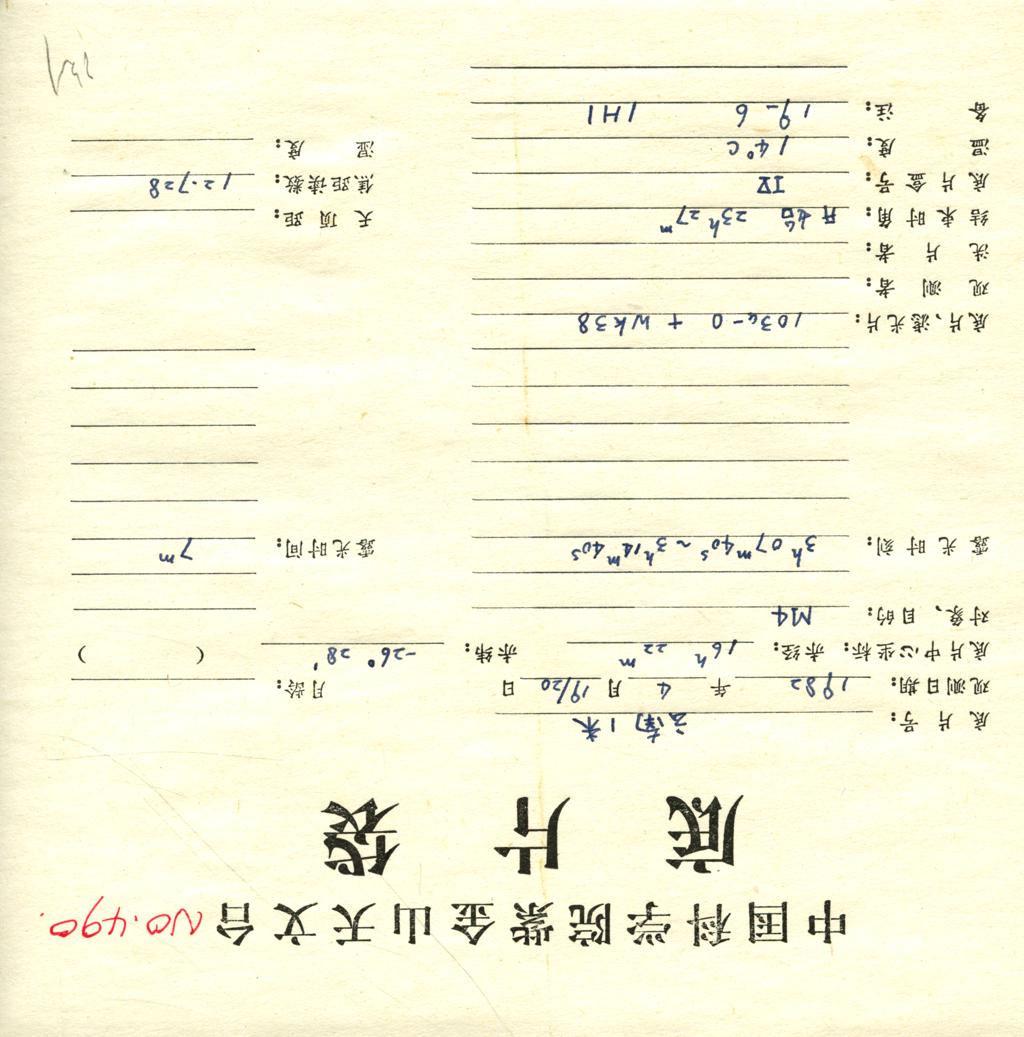 中国科学院紫金山天文台 NO.490.
底片袋
底片号: 云南1米
观测日期: 1982 年 4 月 19/20 日 月龄:
底片中心坐标: 赤经: 16h 22m 赤纬: -26° 28′ ( )
对象、目的: M4
露光时刻: 3h07m40s ~ 3h14m40s 露光时间: 7m
底片、滤光片: 103a-O + WK38
观测者:
洗片者:
结束时角: 开始 23h27m 天顶距:
底片盒号: IV 焦距读数: 12.728
温度: 14°C 湿度:
备注: 19-6 1H1